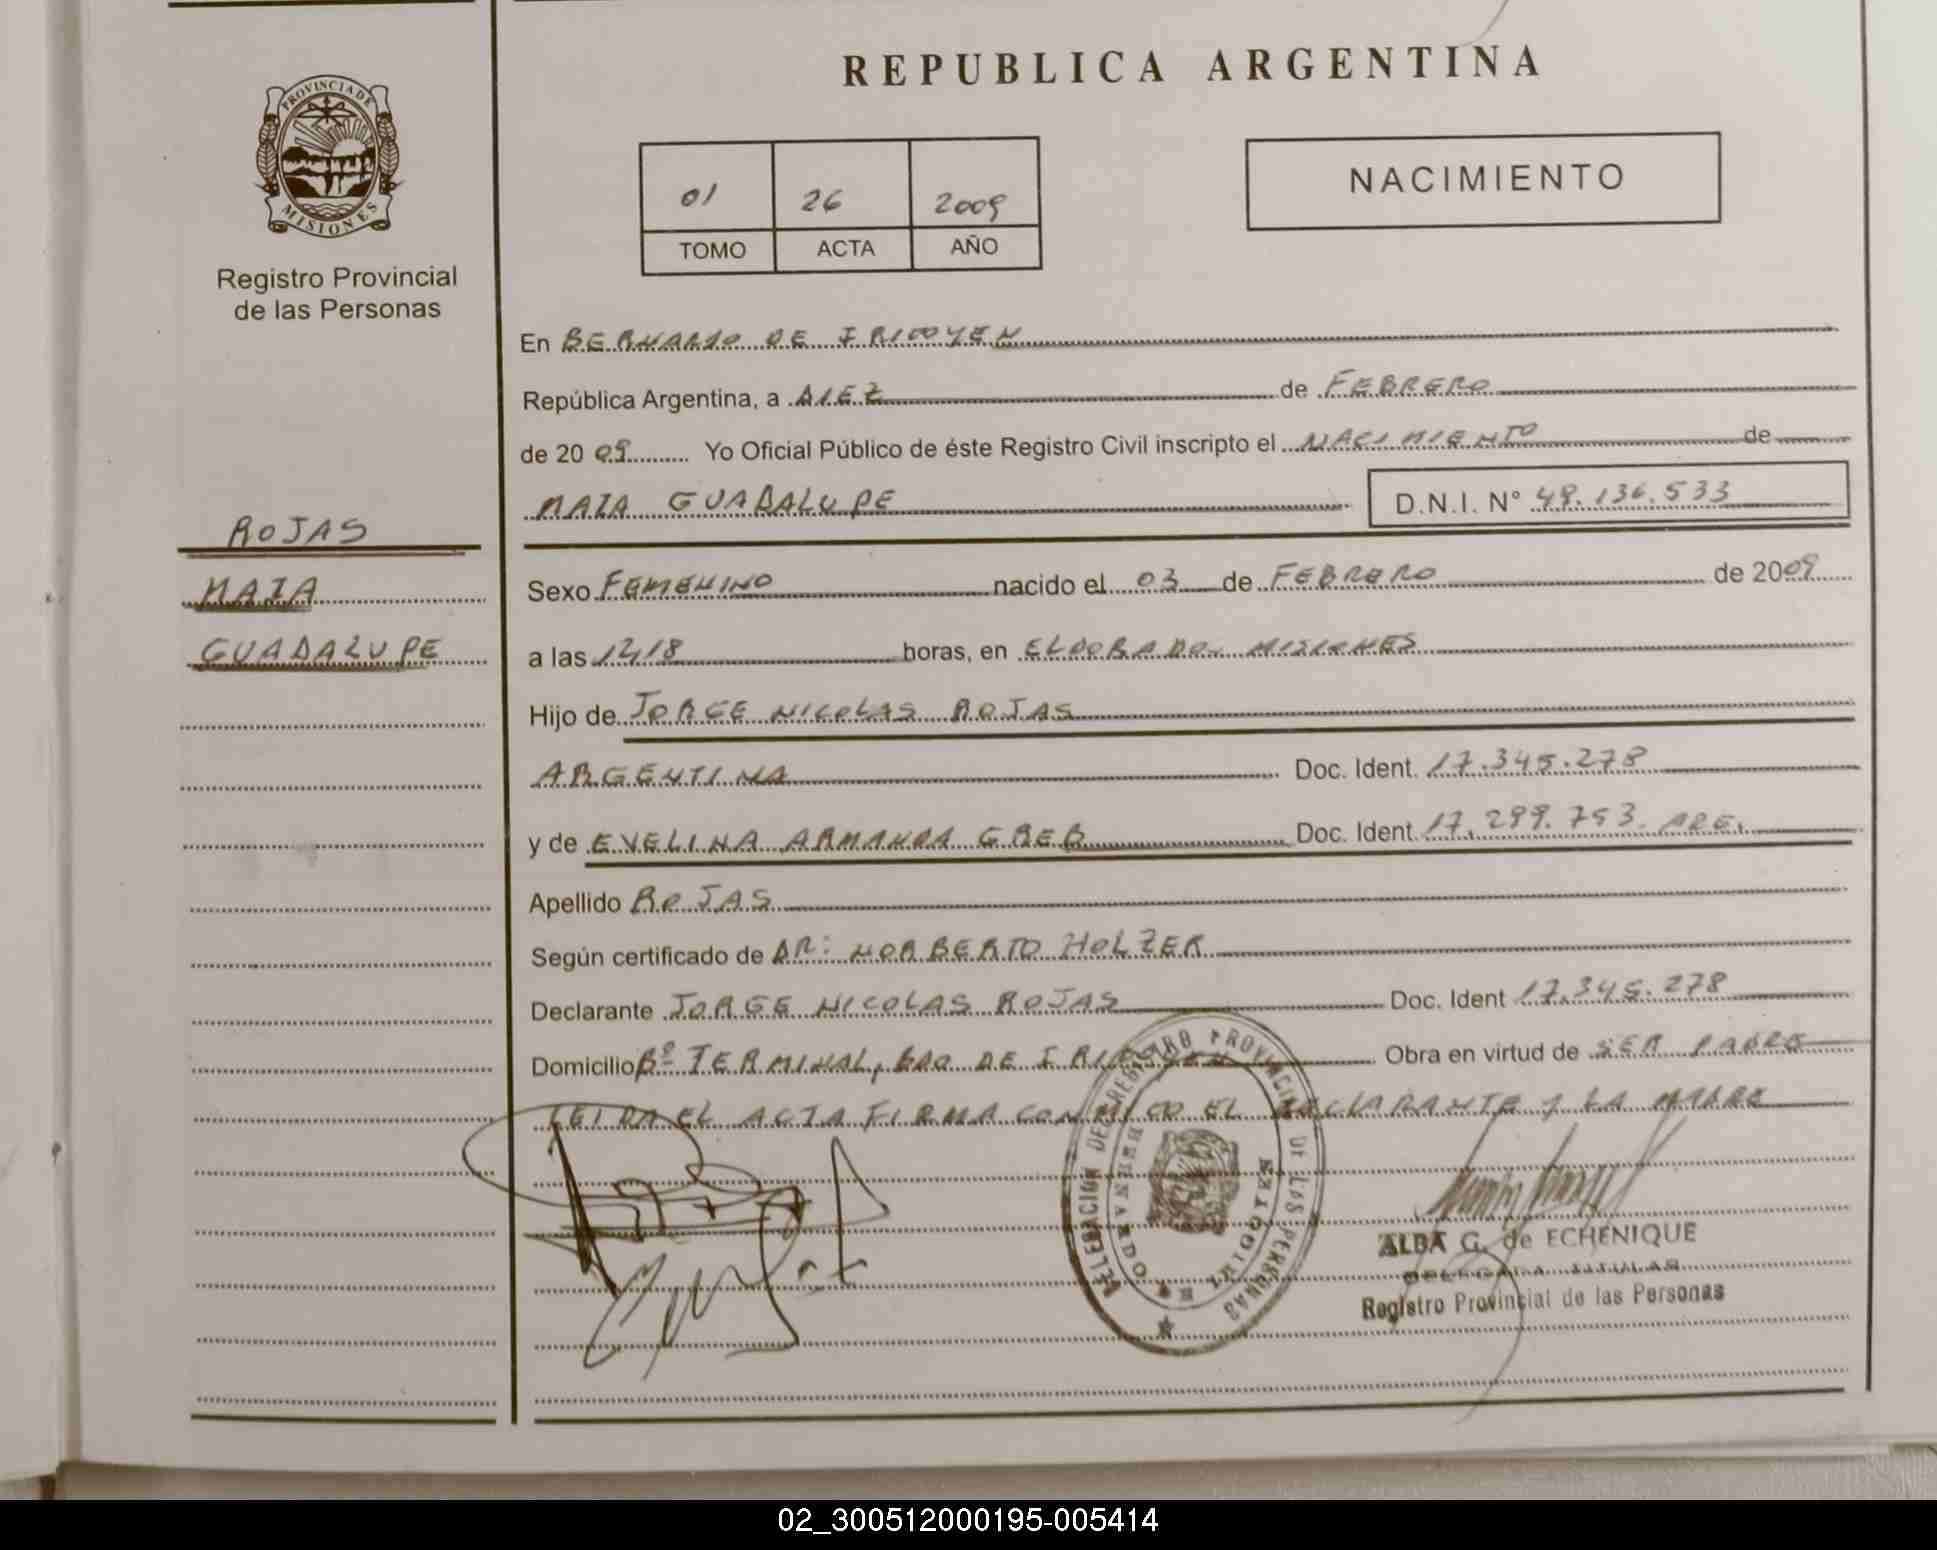 REPUBLICA ARGENTINA
PROVINCIA DE
MISIONES
Registro Provincial
de las Personas
01 26 2009
TOMO ACTA AÑO
NACIMIENTO
En BERNARDO DE IRIGOYEN
República Argentina, a DIEZ de FEBRERO
de 20 09 Yo Oficial Público de éste Registro Civil inscripto el NACIMIENTO de
MAIA GUADALUPE D.N.I. N° 49.136.533
ROJAS
MAIA
GUADALUPE
Sexo FEMENINO nacido el 03 de FEBRERO de 2009
a las horas, en ELDORADO, MISIONES
Hijo de JORGE NICOLAS ROJAS
ARGENTINA Doc. Ident. 17.345.278
y de EVELINA ARMANDA Doc. Ident. 17.299.753. ARG.
Apellido ROJAS
Según certificado de DR: NORBERTO HOLZER
Declarante JORGE NICOLAS ROJAS Doc. Ident 17.345.278
Domicilio Bº TERMINAL, BDO DE IRIGOYEN Obra en virtud de SER PADRE
LEIDA EL ACTA FIRMA CONMIGO EL DECLARANTE y LA MADRE
DELEGACION DEL REGISTRO PROVINCIAL DE LAS PERSONAS
BERNARDO DE IRIGOYEN
ALBA G. de ECHENIQUE
DELEGADA TITULAR
Registro Provincial de las Personas
02_300512000195-005414